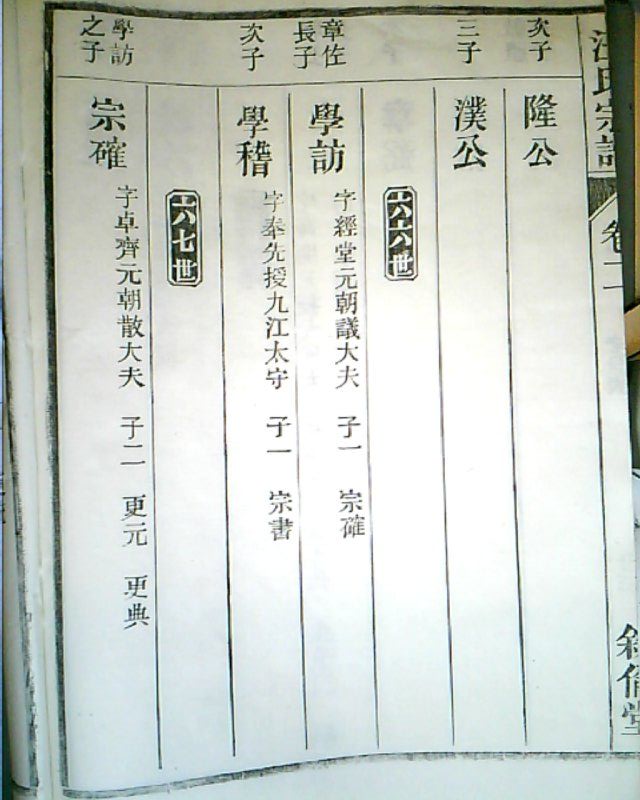 汪氏宗譜
卷二
敘倫堂
次子
隆公
三子
濮公
六六世
章佐長子
學訪
字經堂元朝議大夫 子一 宗確
次子
學稽
字奉先授九江太守 子一 宗書
六七世
學訪之子
宗確
字卓齊元朝散大夫 子二 更元 更典